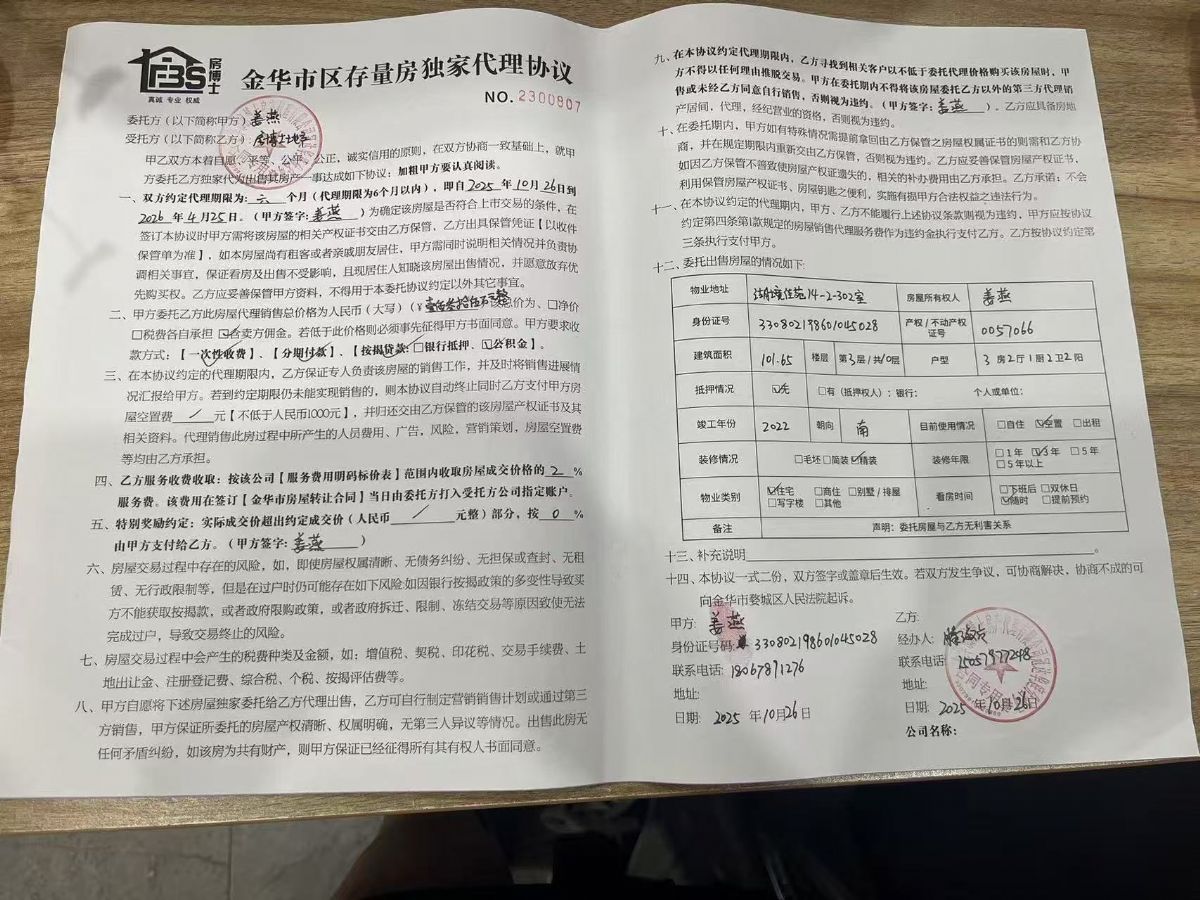 FBS
房博士
真诚 专业 权威
金华市区存量房独家代理协议
NO.2300807
委托方（以下简称甲方）姜燕
受托方（以下简称乙方）房博士地产
甲乙双方本着自愿、平等、公平、公正，诚实信用的原则，在双方协商一致基础上，就甲
方委托乙方独家代为出售其房产一事达成如下协议：加粗甲方要认真阅读。
一、双方约定代理期限为：六 个月（代理期限为6个月以内），即自2025年10月26日到
2026年4月25日。（甲方签字：姜燕）为确定该房屋是否符合上市交易的条件，在
签订本协议时甲方需将该房屋的相关产权证书交由乙方保管、乙方出具保管凭证【以收件
保管单为准】，如本房屋尚有租客或者亲戚朋友居住，甲方需同时说明相关情况并负责协
调相关事宜，保证看房及出售不受影响，且现居住人知晓该房屋出售情况，并愿意放弃优
先购买权。乙方应妥善保管甲方资料，不得用于本委托协议约定以外其它事宜。
二、甲方委托乙方此房屋代理销售总价格为人民币（大写）（¥ 该总价为、□净价
□税费各自承担 ☑含卖方佣金。若低于此价格则必须事先征得甲方书面同意。甲方要求收
款方式：【一次性收费】、【分期付款】、【按揭贷款：□银行抵押、☑公积金】。
三、在本协议约定的代理期限内，乙方保证专人负责该房屋的销售工作，并及时将销售进展情
况汇报给甲方。若到约定期限仍未能实现销售的，则本协议自动终止同时乙方支付甲方房
屋空置费 / 元【不低于人民币1000元】，并归还交由乙方保管的该房屋产权证书及其
相关资料。代理销售此房过程中所产生的人员费用、广告，风险，营销策划，房屋空置费
等均由乙方承担。
四、乙方服务收费收取：按该公司【服务费用明码标价表】范围内收取房屋成交价格的 2 %
服务费。该费用在签订【金华市房屋转让合同】当日由委托方打入受托方公司指定账户。
五、特别奖励约定：实际成交价超出约定成交价（人民币 / 元整）部分，按 0 %
由甲方支付给乙方。（甲方签字：姜燕）
六、房屋交易过程中存在的风险，如，即使房屋权属清晰、无债务纠纷、无担保或查封、无租
赁、无行政限制等，但是在过户时仍可能存在如下风险:如因银行按揭政策的多变性导致买
方不能获取按揭款，或者政府限购政策，或者政府拆迁、限制、冻结交易等原因致使无法
完成过户，导致交易终止的风险。
七、房屋交易过程中会产生的税费种类及金额，如：增值税、契税、印花税、交易手续费、土
地出让金、注册登记费、综合税、个税、按揭评估费等。
八、甲方自愿将下述房屋独家委托给乙方代理出售，乙方可自行制定营销销售计划或通过第三
方销售，甲方保证所委托的房屋产权清晰、权属明确，无第三人异议等情况。出售此房无
任何矛盾纠纷，如该房为共有财产，则甲方保证已经征得所有其有权人书面同意。
九、在本协议约定代理期限内，乙方寻找到相关客户以不低于委托代理价格购买该房屋时，甲
方不得以任何理由推脱交易。甲方在委托期内不得将该房屋委托乙方以外的第三方代理销
售或未经乙方同意自行销售，否则视为违约。（甲方签字：姜燕）。乙方应具备房地
产居间，代理，经纪营业的资格，否则视为违约。
十、在委托期内，甲方如有特殊情况需提前拿回由乙方保管之房屋权属证书的则需和乙方协
商，并在规定期限内重新交由乙方保管，否则视为违约。乙方应妥善保管房屋产权证书，
如因乙方保管不善致使房屋产权证遗失的，相关的补办费用由乙方承担。乙方承诺：不会
利用保管房屋产权证书、房屋钥匙之便利，实施有损甲方合法权益之违法行为。
十一、在本协议约定的代理期内，甲方、乙方不能履行上述协议条款则视为违约，甲方应按协议
约定第四条第1款规定的房屋销售代理服务费作为违约金执行支付乙方。乙方按协议约定第
三条执行支付甲方。
十二、委托出售房屋的情况如下：
物业地址 湖境佳苑14-2-302室 房屋所有权人 姜燕
身份证号 330802198601045028 产权/不动产权证号 0057066
建筑面积 101.65 楼层 第3层/共10层 户型 3房2厅1厨2卫2阳
抵押情况 ☑无 □有（抵押权人）：银行： 个人或单位：
竣工年份 2022 朝向 南 目前使用情况 □自住 ☑空置 □出租
装修情况 □毛坯□简装☑精装 装修年限 □1年 ☑3年 □5年 □5年以上
物业类别 ☑住宅 □商住 □别墅/排屋 □写字楼 □其他 看房时间 □下班后□双休日 ☑随时 □提前预约
备注 声明：委托房屋与乙方无利害关系
十三、补充说明 。
十四、本协议一式二份，双方签字或盖章后生效。若双方发生争议，可协商解决，协商不成的可
向金华市婺城区人民法院起诉。
甲方: 姜燕
身份证号码: 330802198601045028
联系电话: 18067891276
地址:
日期: 2025年10月26日
乙方:
经办人:
联系电话: 15057977248
地址:
日期: 2025年10月26日
公司名称：
合同专用章